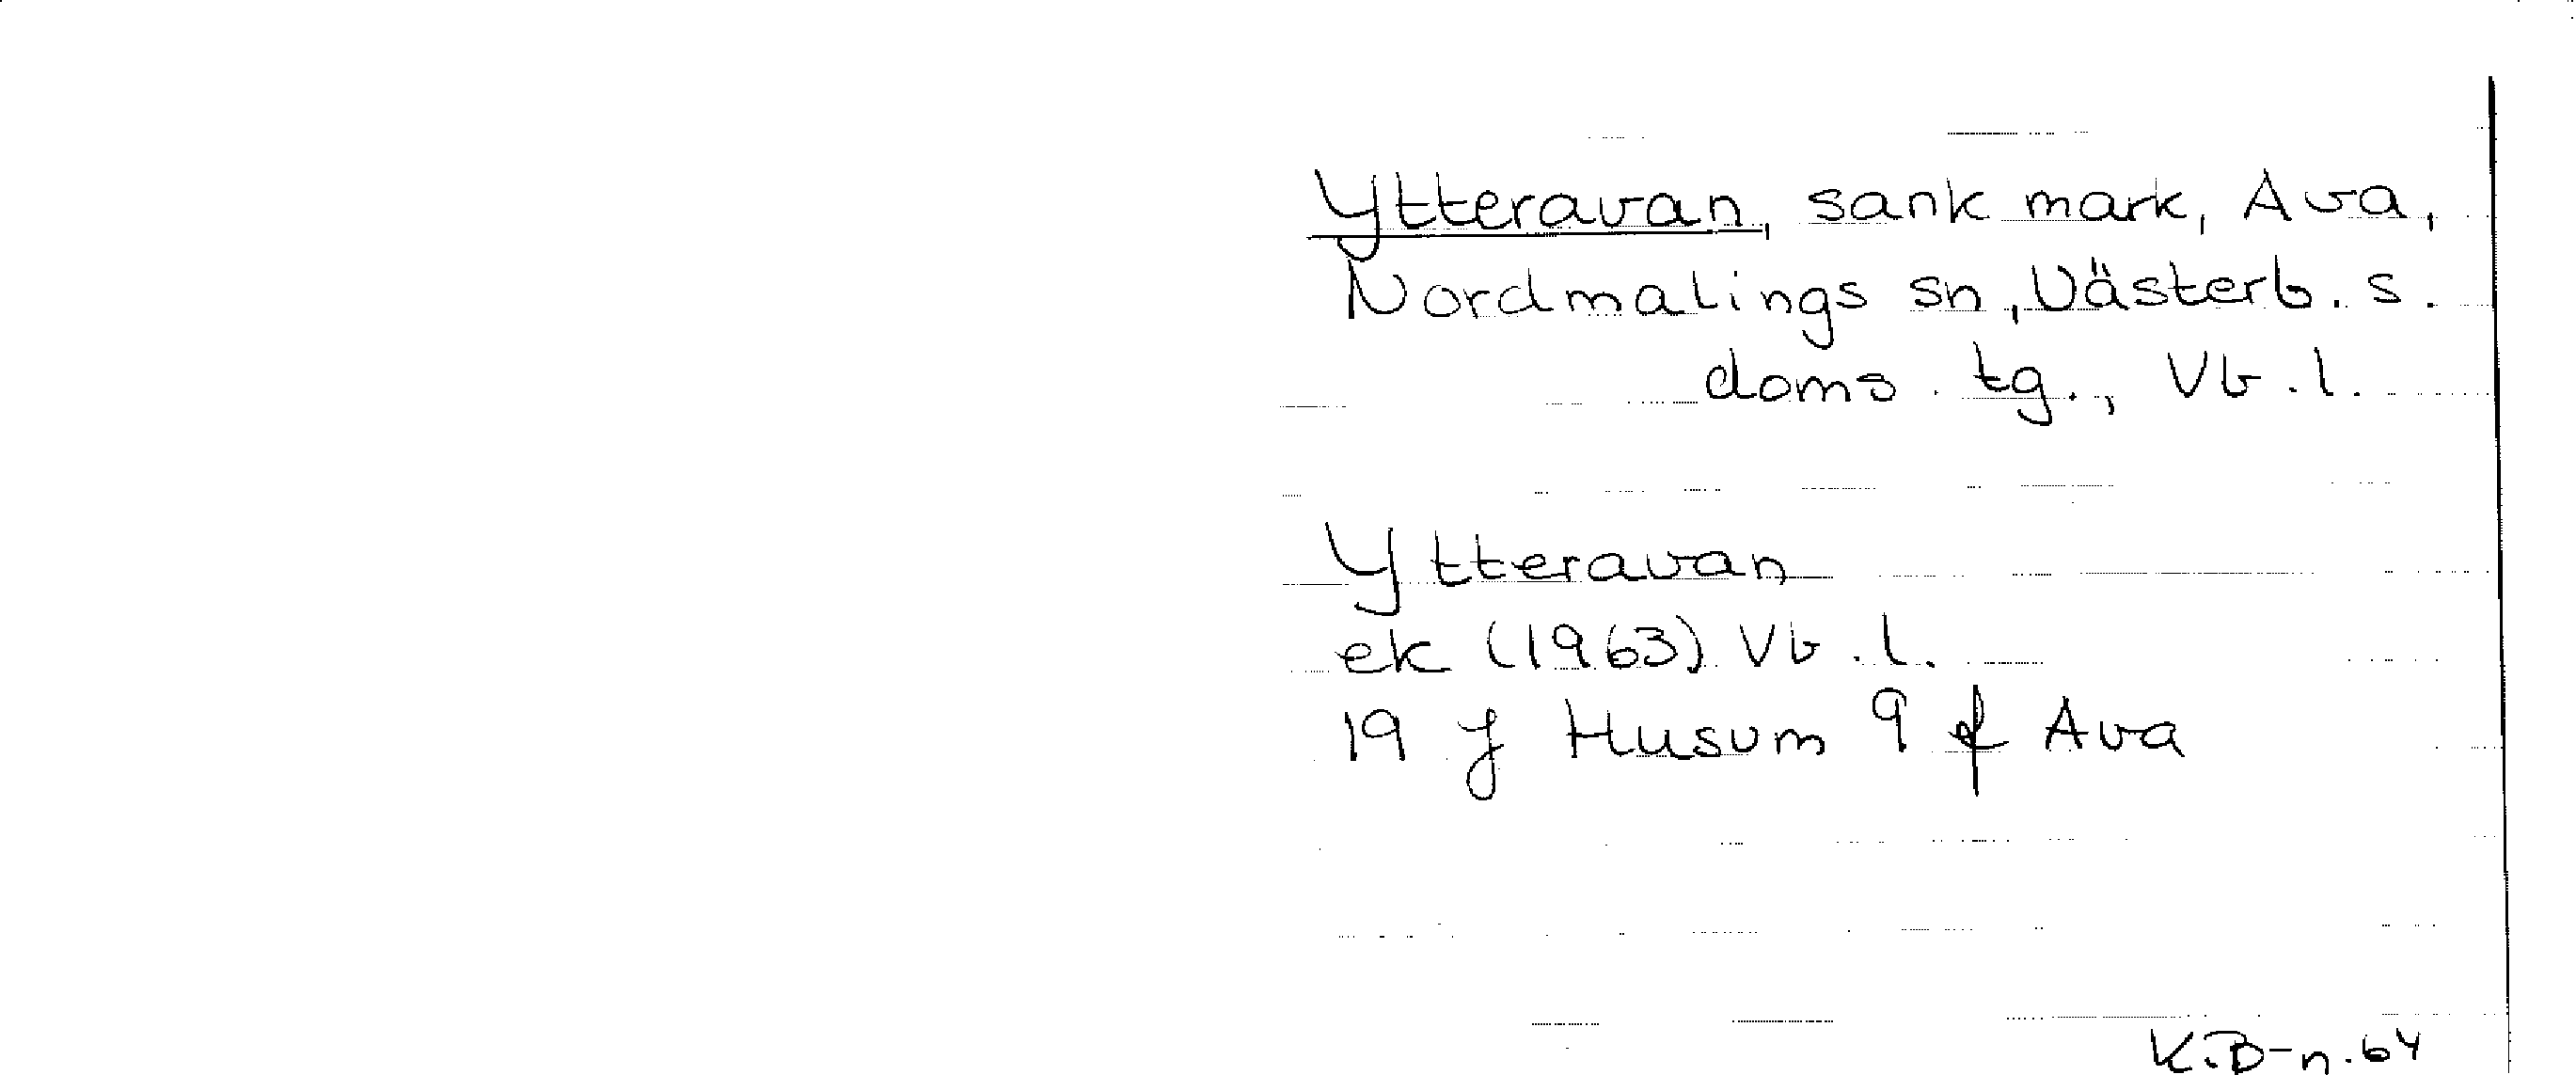 Ytteravan, sank mark, Ava,
Nordmalings sn, Västerb. s.
doms. tg., Vb. l.
Ytteravan
ek (1963) Vb. l.
19 J Husum 9 f Ava
K.B-n. 64